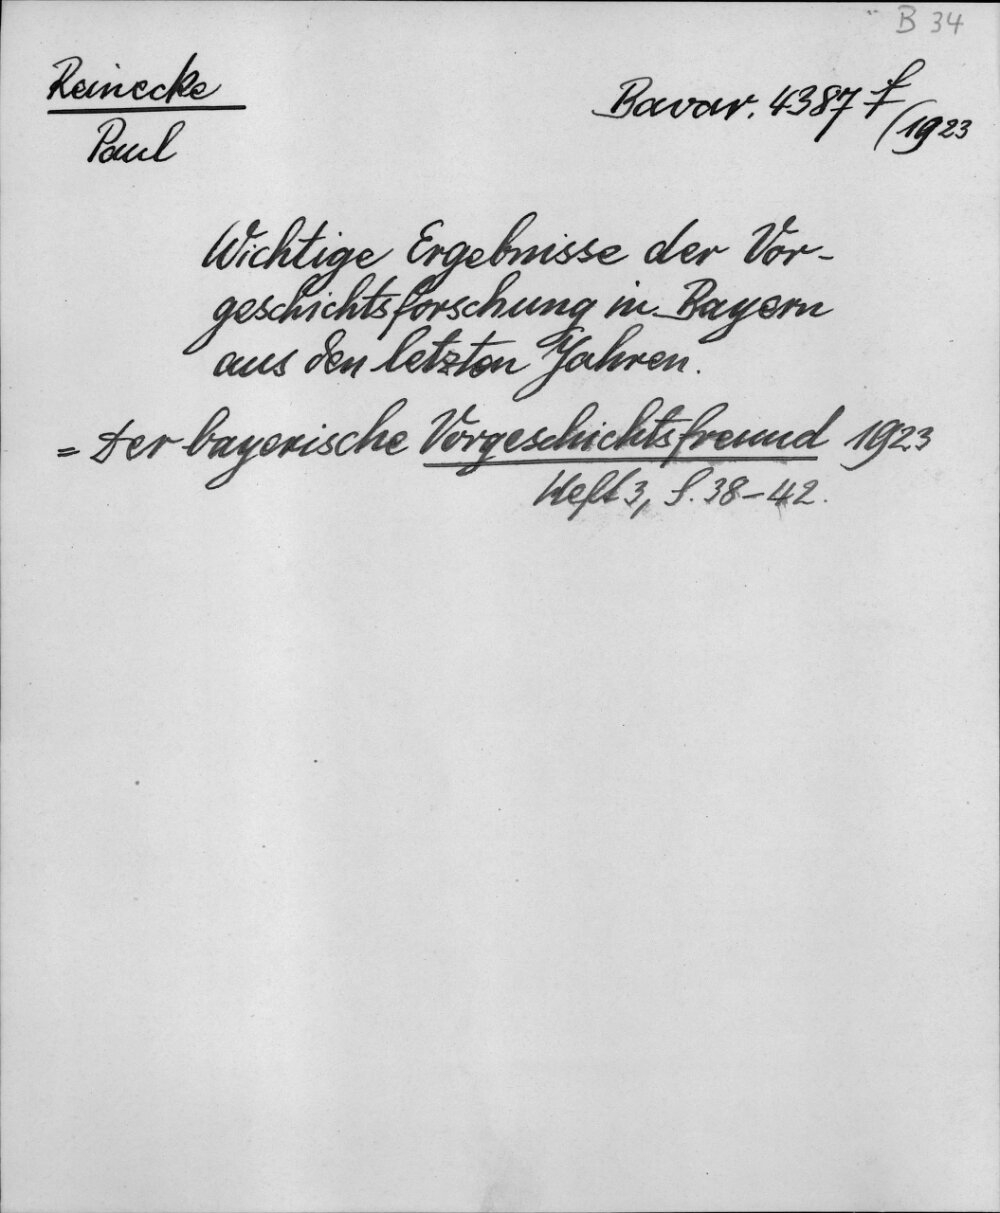 B 34
Reinecke
Paul
Bavar. 4387 f/1923
Wichtige Ergebnisse der Vor-
geschichtsforschung in Bayern
aus den letzten Jahren.
= Der bayerische Vorgeschichtsfreund 1923
Heft 3, S. 38-42.